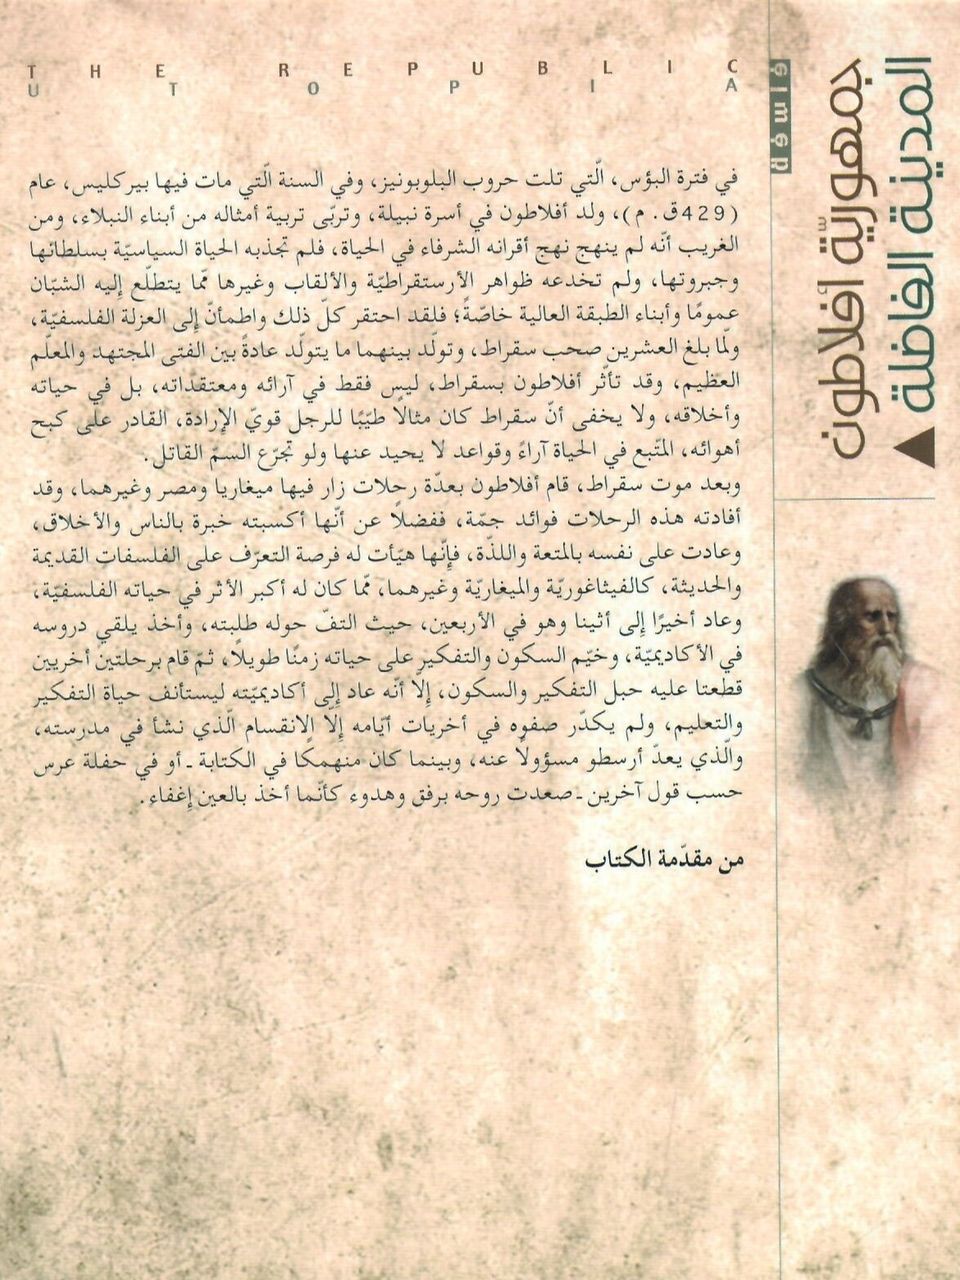 THE REPUBLIC
UTOPIA
في فترة البؤس، الّتي تلت حروب البلوبونيز، وفي السنة الّتي مات فيها بيركليس، عام
(429ق. م)، ولد أفلاطون في أسرة نبيلة، وتربّى تربية أمثاله من أبناء النبلاء، ومن
الغريب أنّه لم ينهج نهج أقرانه الشرفاء في الحياة، فلم تجذبه الحياة السياسيّة بسلطانها
وجبروتها، ولم تخدعه ظواهر الأرستقراطيّة والألقاب وغيرها ممّا يتطلّع إليه الشبّان
عمومًا وأبناء الطبقة العالية خاصّةً؛ فلقد احتقر كلّ ذلك واطمأنّ إلى العزلة الفلسفيّة،
ولمّا بلغ العشرين صحب سقراط، وتولّد بينهما ما يتولّد عادةً بين الفتى المجتهد والمعلّم
العظيم، وقد تأثّر أفلاطون بسقراط، ليس فقط في آرائه ومعتقداته، بل في حياته
وأخلاقه، ولا يخفى أنّ سقراط كان مثالاً طيّبًا للرجل قويّ الإرادة، القادر على كبح
أهوائه، المتّبع في الحياة آراءً وقواعد لا يحيد عنها ولو تجرّع السمّ القاتل.
وبعد موت سقراط، قام أفلاطون بعدّة رحلات زار فيها ميغاريا ومصر وغيرهما، وقد
أفادته هذه الرحلات فوائد جمّة، ففضلاً عن أنّها أكسبته خبرة بالناس والأخلاق،
وعادت على نفسه بالمتعة واللذّة، فإنّها هيّأت له فرصة التعرّف على الفلسفات القديمة
والحديثة، كالفيثاغوريّة والميغاريّة وغيرهما، ممّا كان له أكبر الأثر في حياته الفلسفيّة،
وعاد أخيرًا إلى أثينا وهو في الأربعين، حيث التفّ حوله طلبته، وأخذ يلقي دروسه
في الأكاديميّة، وخيّم السكون والتفكير على حياته زمنًا طويلاً، ثمّ قام برحلتين أخريين
قطعتا عليه حبل التفكير والسكون، إلّا أنّه عاد إلى أكاديميّته ليستأنف حياة التفكير
والتعليم، ولم يكدّر صفوه في أخريات أيّامه إلّا الانقسام الّذي نشأ في مدرسته،
والّذي يعدّ أرسطو مسؤولاً عنه، وبينما كان منهمكًا في الكتابة ـ أو في حفلة عرس
حسب قول آخرين ـ صعدت روحه برفق وهدوء كأنّما أخذ بالعين إغفاء.
من مقدّمة الكتاب
المدينة الفاضلة
جمهوريّة أفلاطون